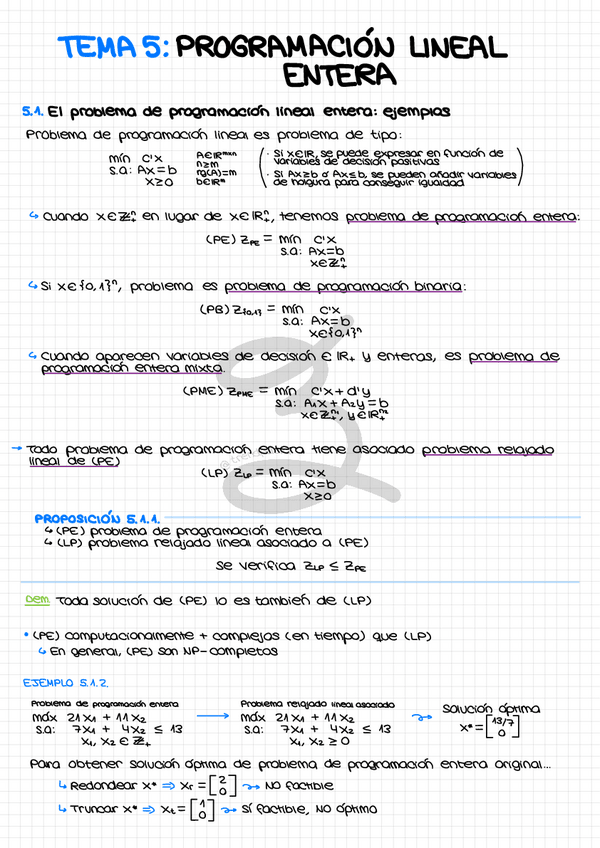 TEMA 5: PROGRAMACIÓN LINEAL
ENTERA
5.1. El problema de programación lineal entera: ejemplos
Problema de programación lineal es problema de tipo:
mín c'x
s.a: Ax=b
x≥0
A∈ℝᵐˣⁿ
n≥m
rg(A)=m
b∈ℝᵐ
· Si x∈ℝ, se puede expresar en función de
variables de decisión positivas
· Si Ax≥b ó Ax≤b, se pueden añadir variables
de holgura para conseguir igualdad
↳ Cuando x∈ℤ₊ⁿ en lugar de x∈ℝ₊ⁿ, tenemos problema de programación entera:
(PE) Z_PE = mín c'x
s.a: Ax=b
x∈ℤ₊ⁿ
↳ Si x∈{0,1}ⁿ, problema es problema de programación binaria:
(PB) Z_{0,1} = mín c'x
s.a: Ax=b
x∈{0,1}ⁿ
↳ Cuando aparecen variables de decisión ∈ℝ₊ y enteras, es problema de
programación entera mixta.
(PME) Z_PME = mín c'x + d'y
s.a: A₁x + A₂y = b
x∈ℤ₊ⁿ¹, y∈ℝ₊ⁿ²
→ Todo problema de programación entera tiene asociado problema relajado
lineal de (PE)
(LP) Z_LP = mín c'x
s.a: Ax=b
x≥0
PROPOSICIÓN 5.1.1.
↳ (PE) problema de programación entera
↳ (LP) problema relajado lineal asociado a (PE)
Se verifica Z_LP ≤ Z_PE
Dem. Toda solución de (PE) lo es también de (LP)
• (PE) computacionalmente + complejas (en tiempo) que (LP)
↳ En general, (PE) son NP-completos
EJEMPLO 5.1.2.
Problema de programación entera
máx 21x₁ + 11x₂
s.a: 7x₁ + 4x₂ ≤ 13
x₁, x₂ ∈ ℤ₊
→
Problema relajado lineal asociado
máx 21x₁ + 11x₂
s.a: 7x₁ + 4x₂ ≤ 13
x₁, x₂ ≥ 0
Solución óptima
x* = [13/7
0]
Para obtener solución óptima de problema de programación entera original...
↳ Redondear x* ⇒ xᵣ = [2 0] ⤳ No factible
↳ Truncar x* ⇒ xₜ = [1 0] ⤳ Sí factible, NO óptimo